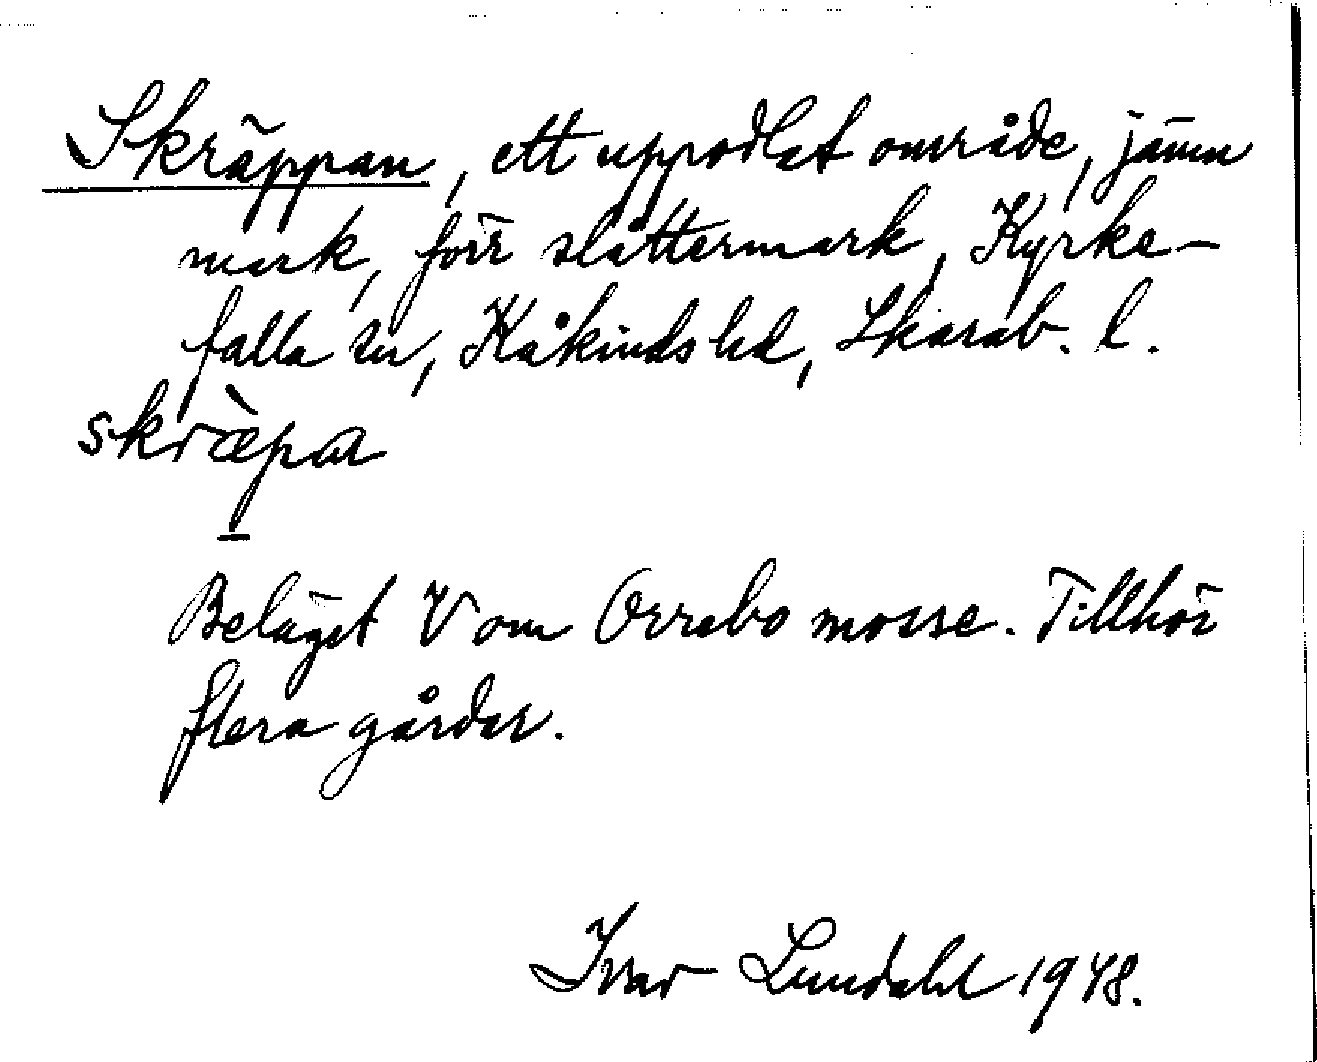 Skräppan, ett uppodlat område, jämn
mark, förr slåttermark, Kyrke-
falla sn, Kåkinds hd, Skarab. l.
skræ̀pa
Beläget V om Orrebo mosse. Tillhör
flera gårdar.
Ivar Lundahl 1948.